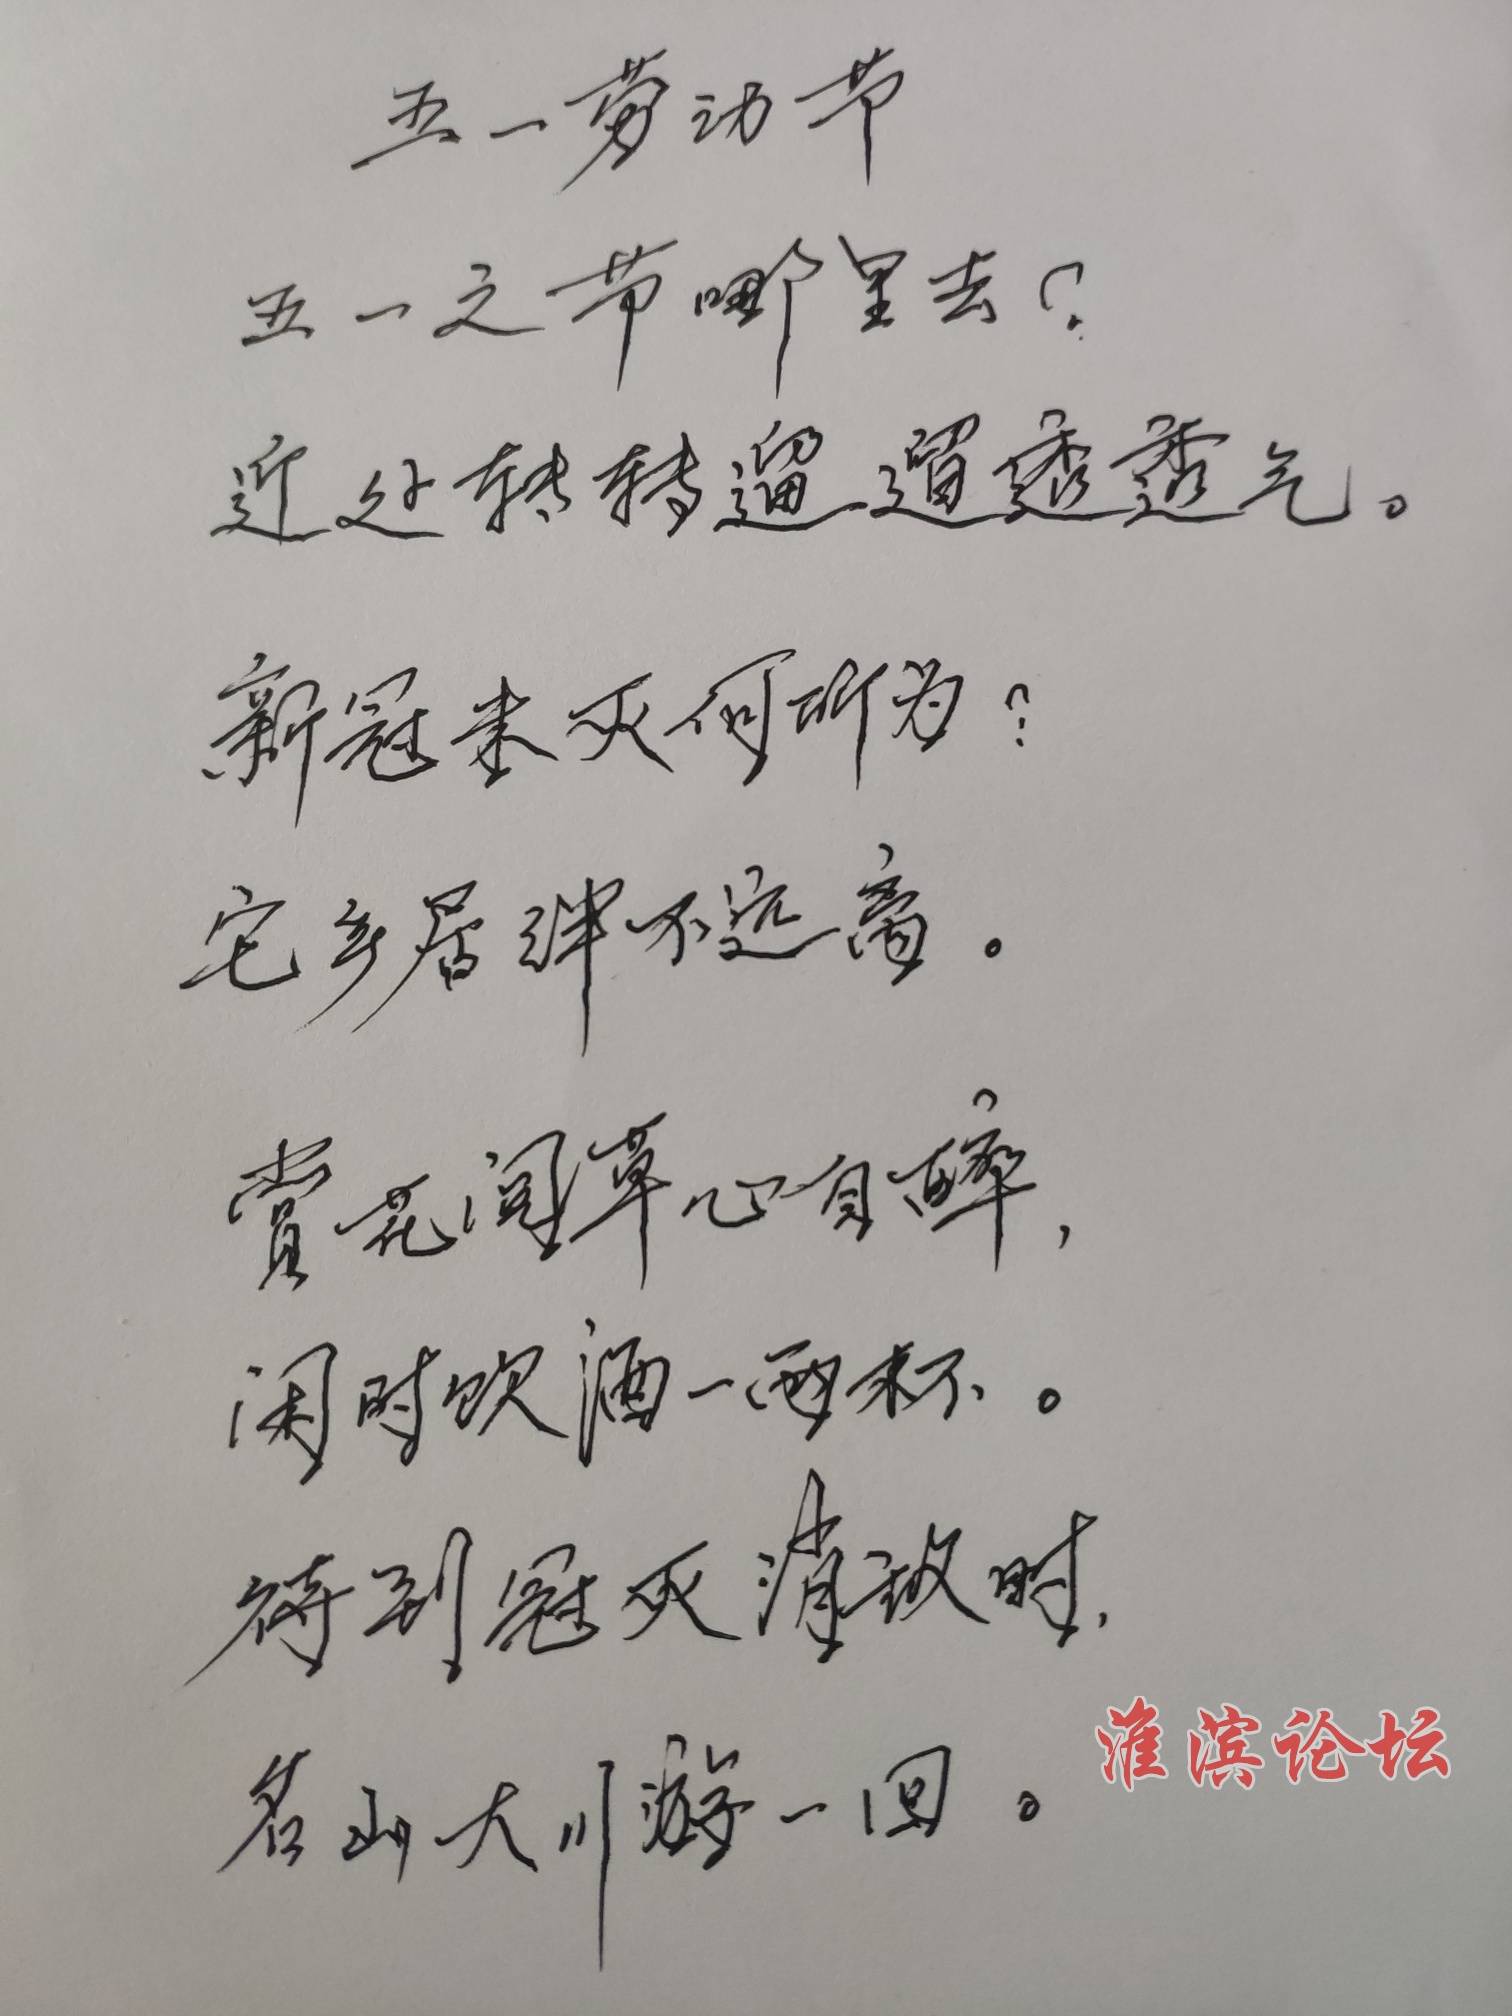 五一劳动节
五一之节哪里去?
近处转转遛遛透透气。
新冠未灭何所为?
宅乡居泮不远离。
赏花闻草心自醉,
闲时饮酒一两杯。
待到冠灭消散时,
名山大川游一回。
淮滨论坛